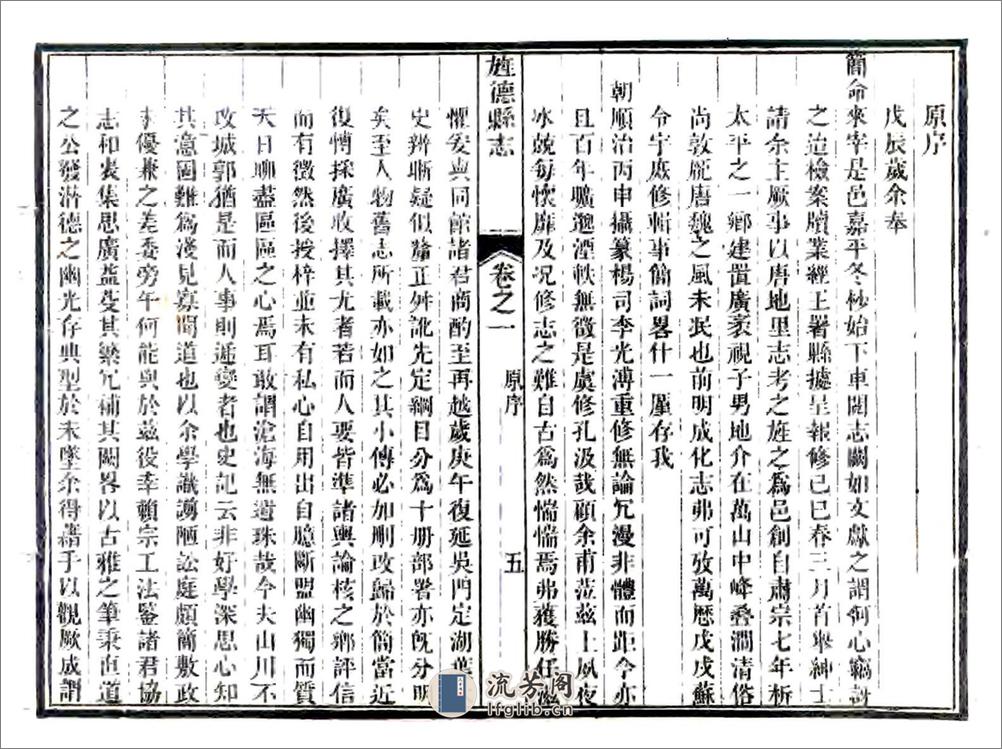 原序
戊辰歲余奉
簡命來宰是邑嘉平冬杪始下車閱志闕如文獻之謂何心竊
之迨檢案牘業經王署縣據呈報修己巳春三月首舉紳士
請余主厥事以唐地里志考之旌之為邑創自肅宗七年析
太平之一鄉建置廣袤視子男地介在萬山中峰叠澗清俗
尚敦龐唐魏之風未泯也前明成化志弗可攷萬歷戊戌蘇
令宇庶修斬事簡詞畧什一廑存我
朝順治丙申攝篆楊司李光溥重修無論冗漫非體而距今亦
且百年曠邈湮軼無徵是虞修孔汲哉顧余甫蒞茲土夙夜
冰兢每懷靡及況修志之難自古為然惴惴焉弗獲勝任
旌德縣志 卷之一 原序 五
懼妥與同館諸君商酌至再越歲庚午復延吳門定湖葉
史辨晰疑似釐正舛訛先定綱目分為十册部署亦既分明
矣至人物舊志所載亦如之其小傳必加刪改歸於簡當近
復博採廣收擇其尤者若而人要皆準諸輿論核之鄉評信
而有徵然後授梓並未有私心自用出自臆斷盟幽獨而質
天日聊盡區區之心焉耳敢謂滄海無遺珠哉今夫山川不
改城郭猶是而人事則遞變者也史記云非好學深思心知
其意固難為淺見寡聞道也以余學識譾陋訟庭頗簡敷政
未優兼之差委旁午何能與於茲役幸賴宗工法鑒諸君協
志和衷集思廣益芟其蘩冗補其闕畧以古雅之筆秉直道
之公發潛德之幽光存典型於未墜余得藉手以觀厥成謂
流芳阁
lfglib.cn